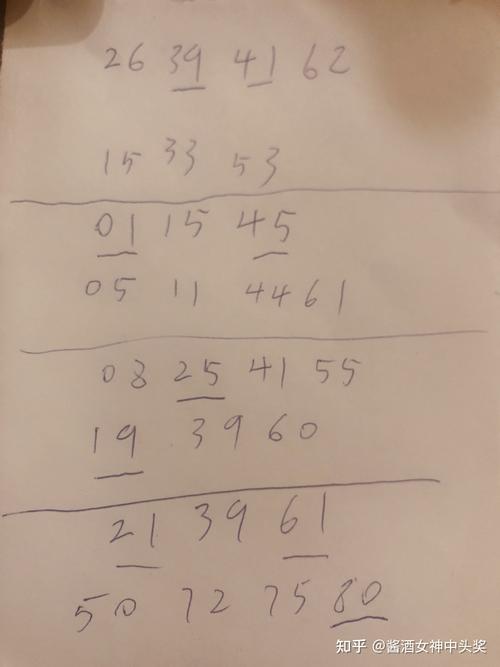 26 39 41 62
15 33 53
01 15 45
05 11 44 61
08 25 41 55
19 39 60
21 39 61
50 72 75 80
知乎 @酱酒女神中头奖